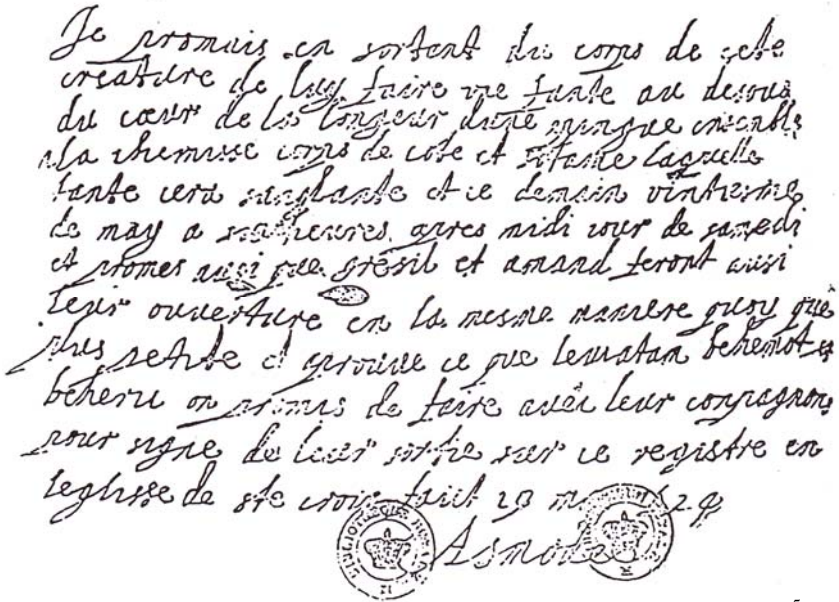 Je promais en sortent du corps de cete
creature de luy faire vne fante au desous
du cœur de la longeur dune pingue ensenble
a la chemisse corps de cote et sotane laquelle
fante cera sanglante et ce demain vintiesme
de may a heures apres midi iour de samedi
et promes ausi que gresil et amand feront ausi
leur ouuerture en la mesme maniere quoy que
plus petite et aprouue ce que leuiatan behemot
beherie on promis de faire auec leur conpagnon
pour signe de leur sortie sur ce registre en
leglisse de ste croix faict 19 may
Asmodee
BIBLIOTHEQUE